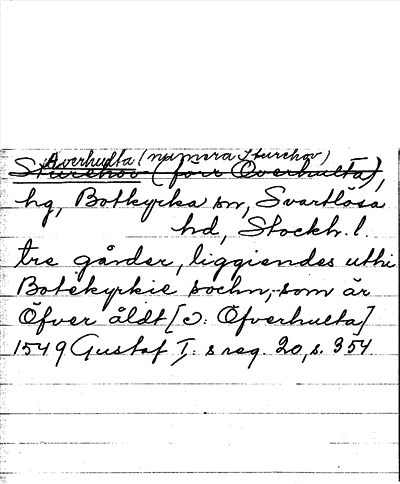 Averhulta (numera Sturehov)
Sturehov (förr Överhulta),
hg, Botkyrka sn, Svartlösa
hd, Stockh. l.
tre gårder, liggiendes uthi
Botekyrkie sochn, som är
Öfver åldt [ɔ: Öfverhulta]
1549 Gustaf I: s reg. 20, s. 354.